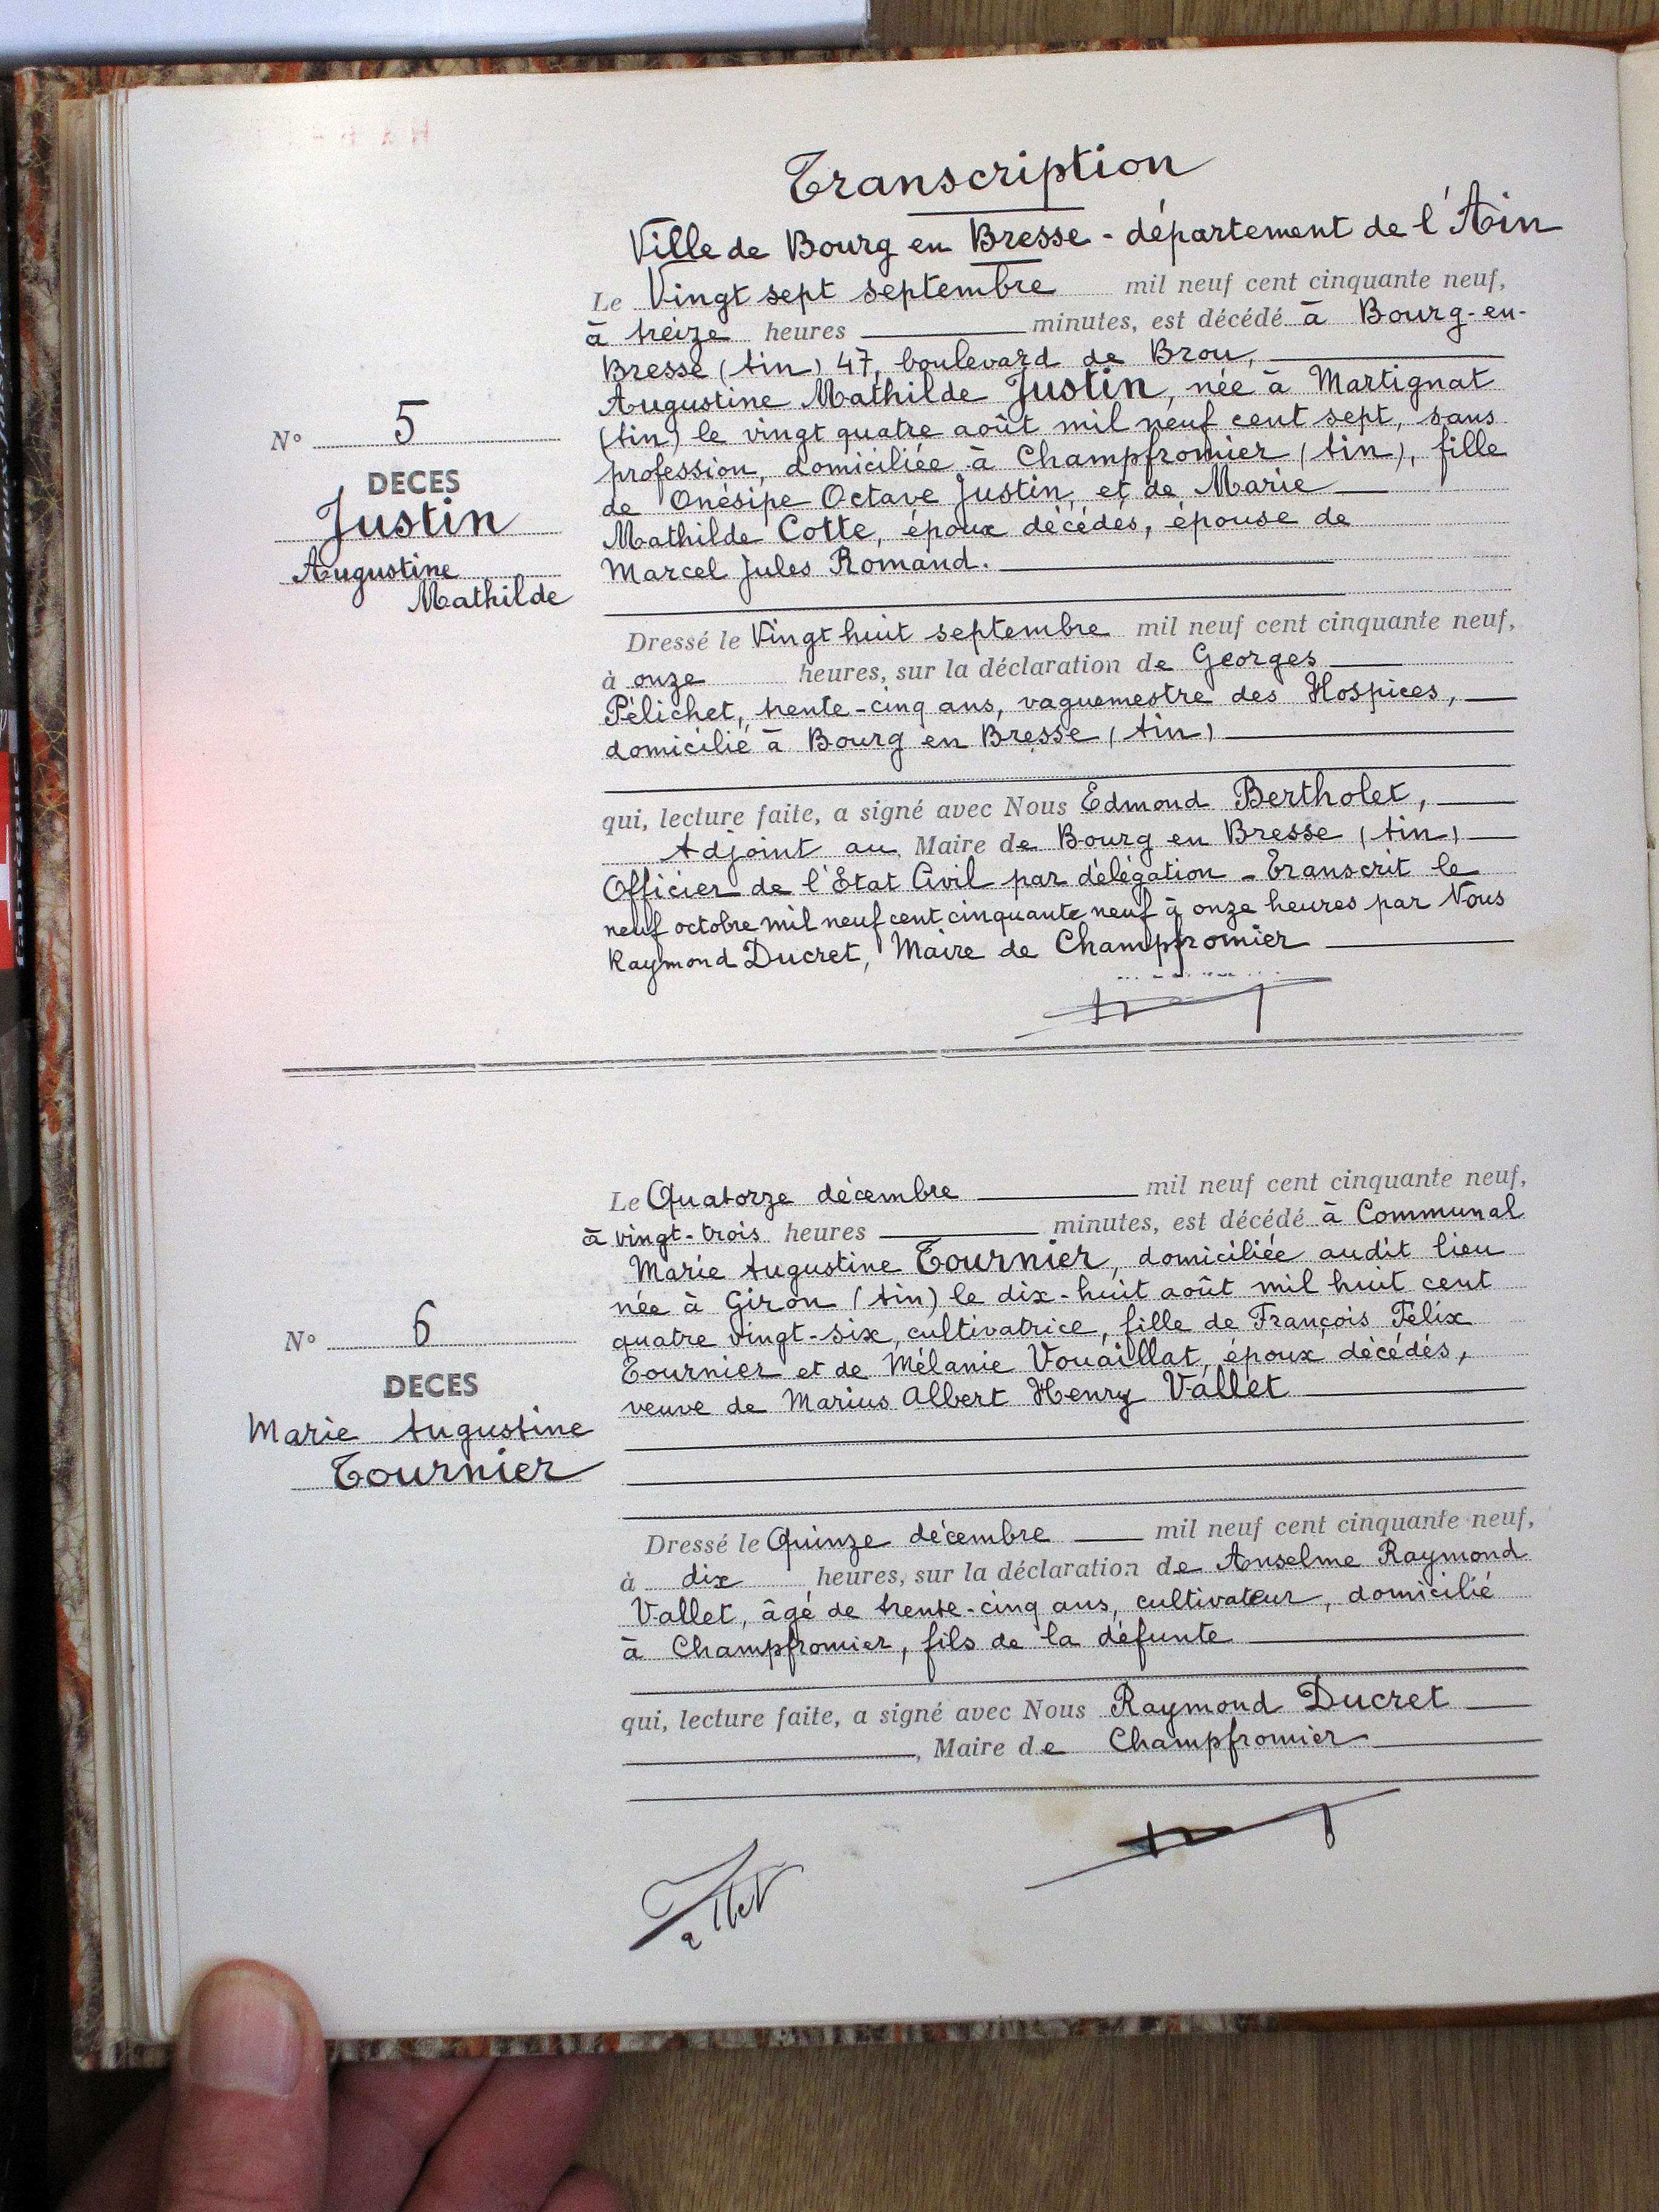 Transcription
Ville de Bourg en Bresse - département de l'Ain
Le Vingt sept septembre mil neuf cent cinquante neuf,
à treize heures minutes, est décédé à Bourg-en-
Bresse (Ain) 47, boulevard de Brou,
Augustine Mathilde Justin, née à Martignat
(Ain) le vingt quatre août mil neuf cent sept, sans
profession, domiciliée à Champfromier (Ain), fille
de Onésipe Octave Justin et de Marie
Mathilde Cotte, époux décédés, épouse de
Marcel Jules Romand.
N° 5
DECES
Justin
Augustine
Mathilde
Dressé le Vingt huit septembre mil neuf cent cinquante neuf,
à onze heures, sur la déclaration de Georges
Pélichet, trente-cinq ans, vaguemestre des Hospices,
domicilié à Bourg en Bresse (Ain)
qui, lecture faite, a signé avec Nous Edmond Bertholet,
Adjoint au Maire de Bourg en Bresse (Ain)
Officier de l'Etat Civil par délégation - Transcrit le
neuf octobre mil neuf cent cinquante neuf à onze heures par Nous
Raymond Ducret, Maire de Champfromier
Le Quatorze décembre mil neuf cent cinquante neuf,
à vingt-trois heures minutes, est décédé à Communal
Marie Augustine Tournier, domiciliée audit lieu
née à Giron (Ain) le dix-huit août mil huit cent
quatre vingt-six, cultivatrice, fille de François Félix
Tournier et de Mélanie Vouaillat, époux décédés,
veuve de Marius Albert Henry Vallet
N° 6
DECES
Marie Augustine
Tournier
Dressé le Quinze décembre mil neuf cent cinquante neuf,
à dix heures, sur la déclaration de Anselme Raymond
Vallet, âgé de trente-cinq ans, cultivateur, domicilié
à Champfromier, fils de la défunte
qui, lecture faite, a signé avec Nous Raymond Ducret
, Maire de Champfromier
Vallet